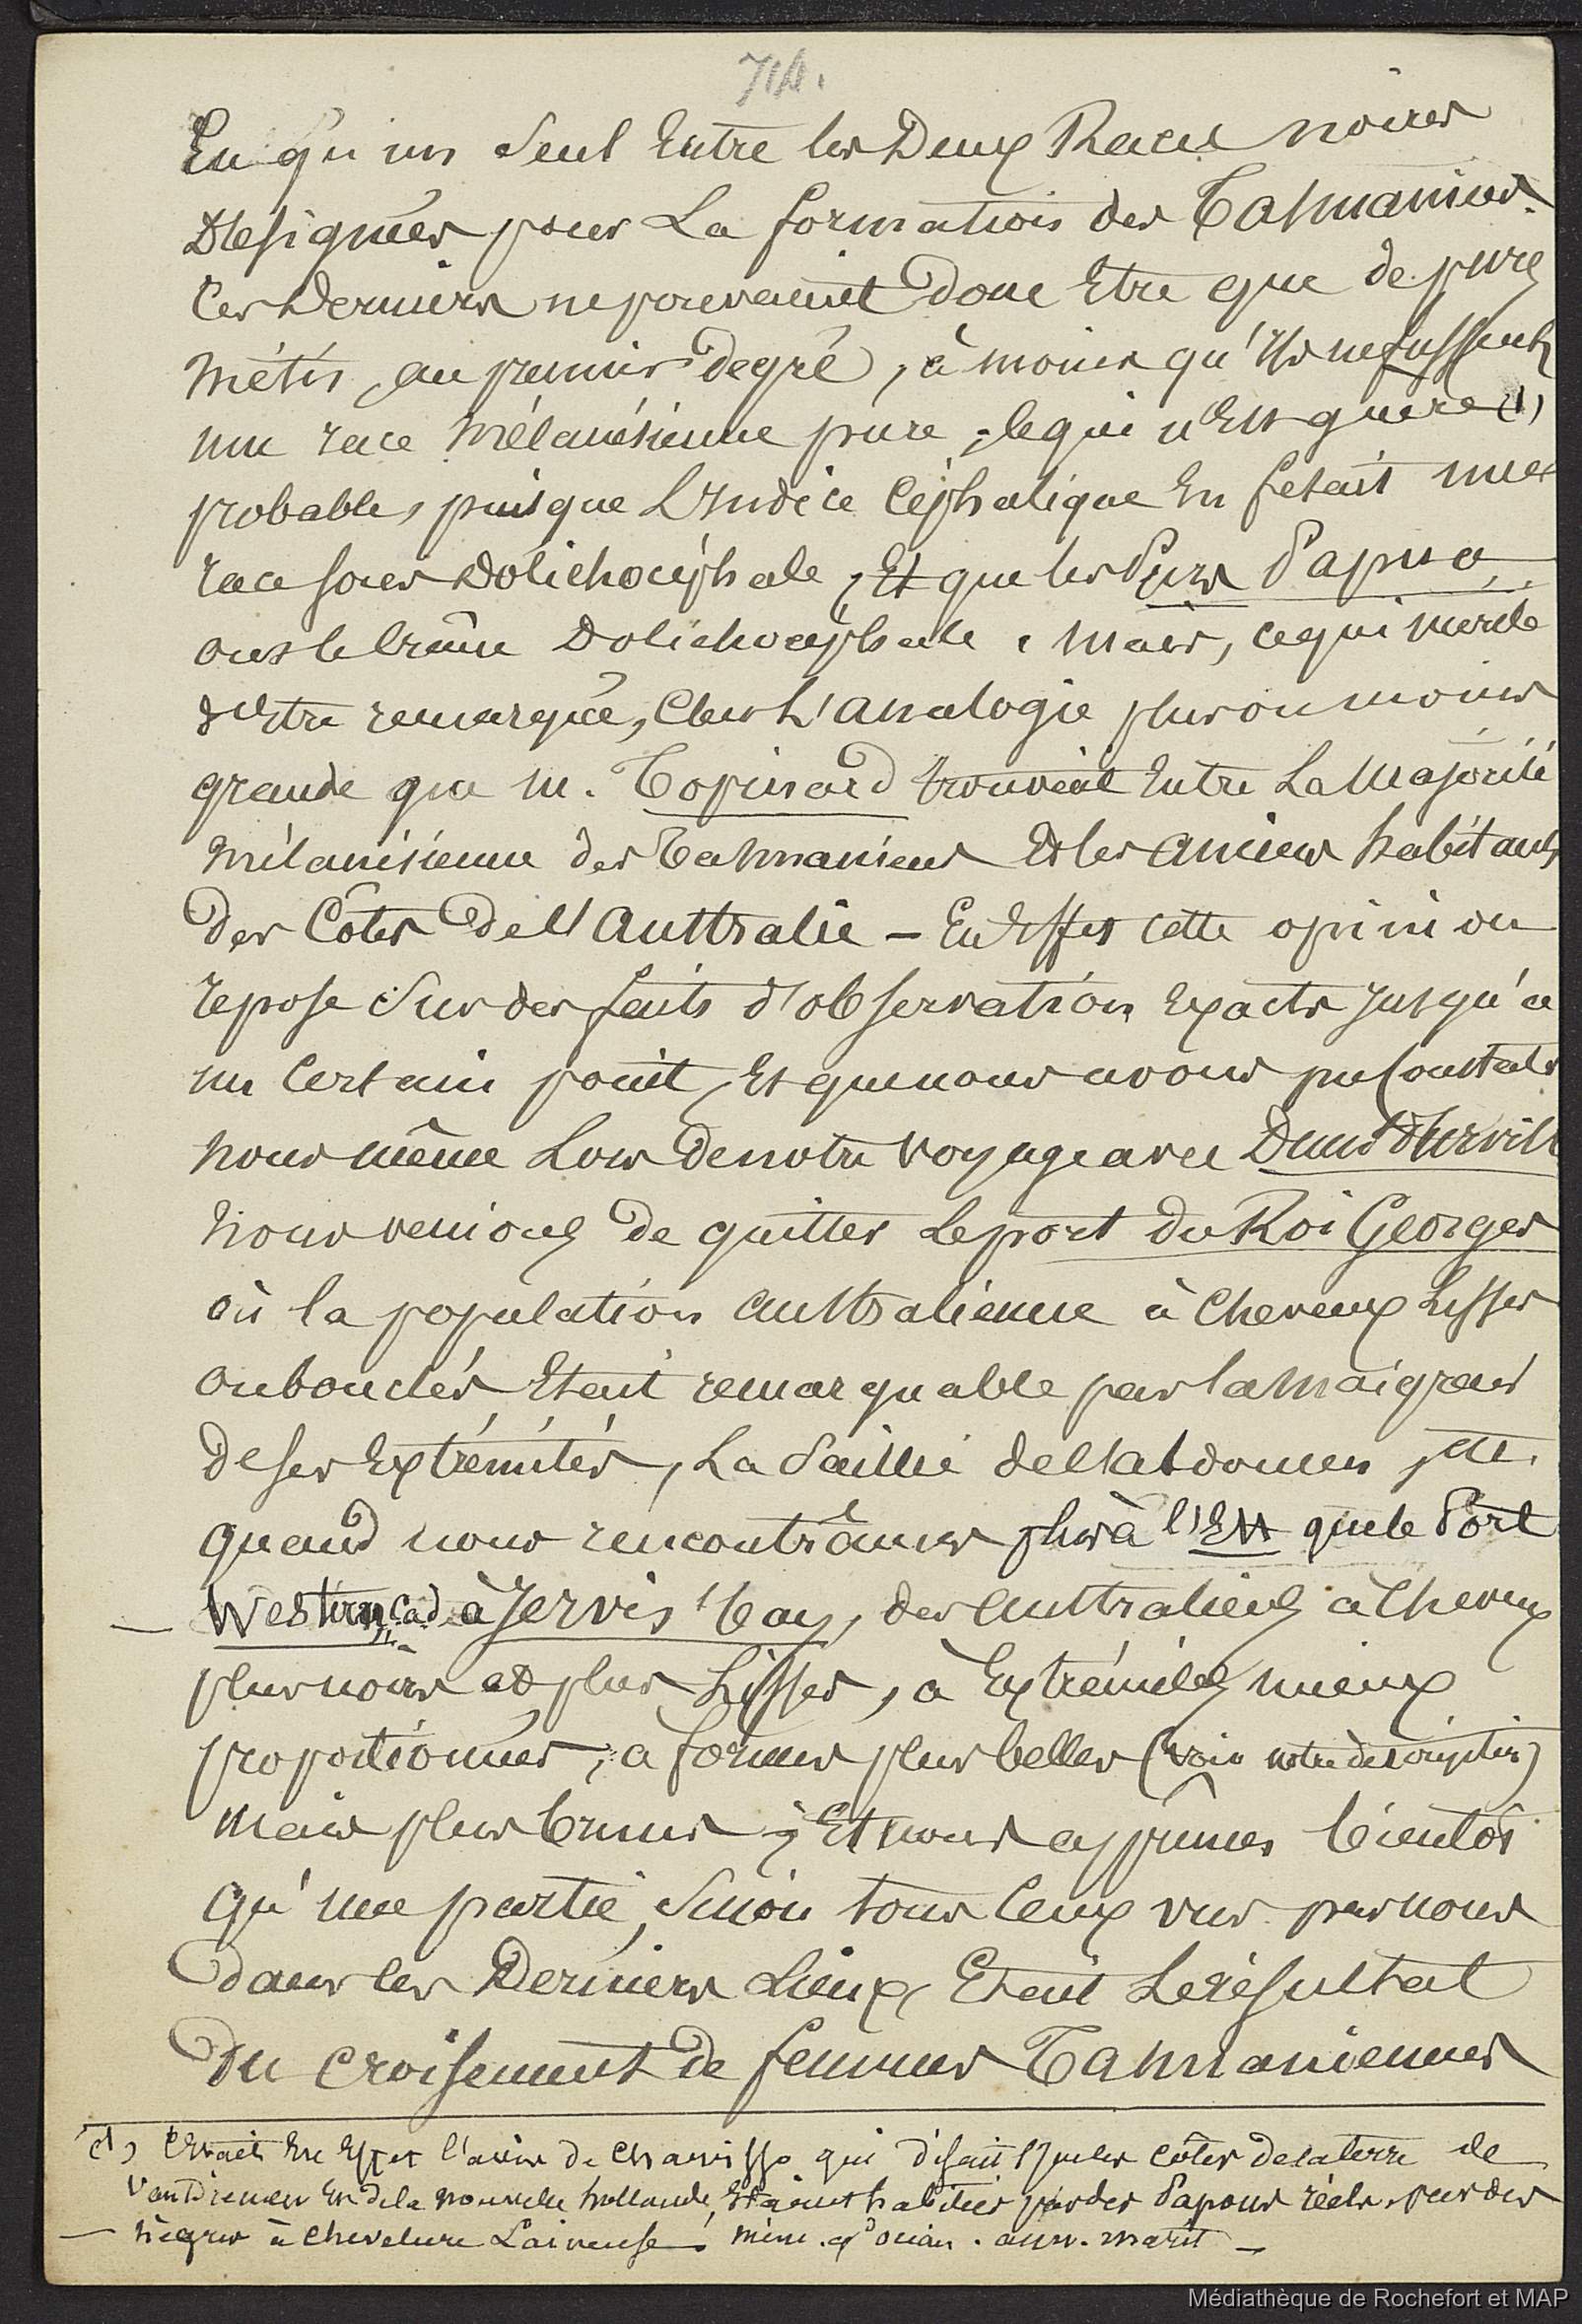 714.
Eu qu'un seul Entre les Deux Races noires
Désignées pour La formation des Tasmaniens.
Ces Derniers ne pouvaient Donc Etre que de purs
métis, au premier Degré, à moins qu'Ils ne fussent
une race mélanésienne pure, ce qui n'Est guère (1)
probable, puisque L'Indice Céphalique En fesait une
race sous Dolichocéphale, Et que les Purs Papua
ont le crâne Dolichocéphale. Mais, ce qui mérite
d'Etre remarqué, c'est L'analogie plus ou moins
grande que M. Topinard trouvait Entre La Majorité
mélanésienne des Tasmaniens Et les anciens habitants
Des Côtes De l'Australie — En Effet cette opinion
repose Sur des faits d'observation Exacts jusqu'à
un Certain point, Et que nous avons pu Constater
nous même Lors De notre voyage avec Dumt d'Urville
Nous venions De quitter Le port du Roi Georges
où la population australienne à Cheveux Lisses
ou bouclés Etait remarquable par la Maigreur
De ses Extrémités, La Saillie de l'abdomen, etc.
quand nous rencontrâmes plus à l'Est que le Port
Western, càd. à Jervis bay, des Australiens à Cheveux
plus noirs et plus Lisses, à Extrémités mieux
proportionnées, à formes plus belles (voir notre description)
mais plus bruns; Et nous apprîmes bientôt
qu'une partie, Sinon tous Ceux vus par nous
dans les Derniers Lieux, Etait Le résultat
Du croisement de femmes Tasmaniennes
(1) C'Etait En Effet l'avis de Chamisso qui disait que les côtes de la terre de
Van Diemen Et de la nouvelle hollande, Etaient habitées par des Papous réels, par des
nègres à chevelure Laineuse. mém. gd océan. ann. marit —
Médiathèque de Rochefort et MAP